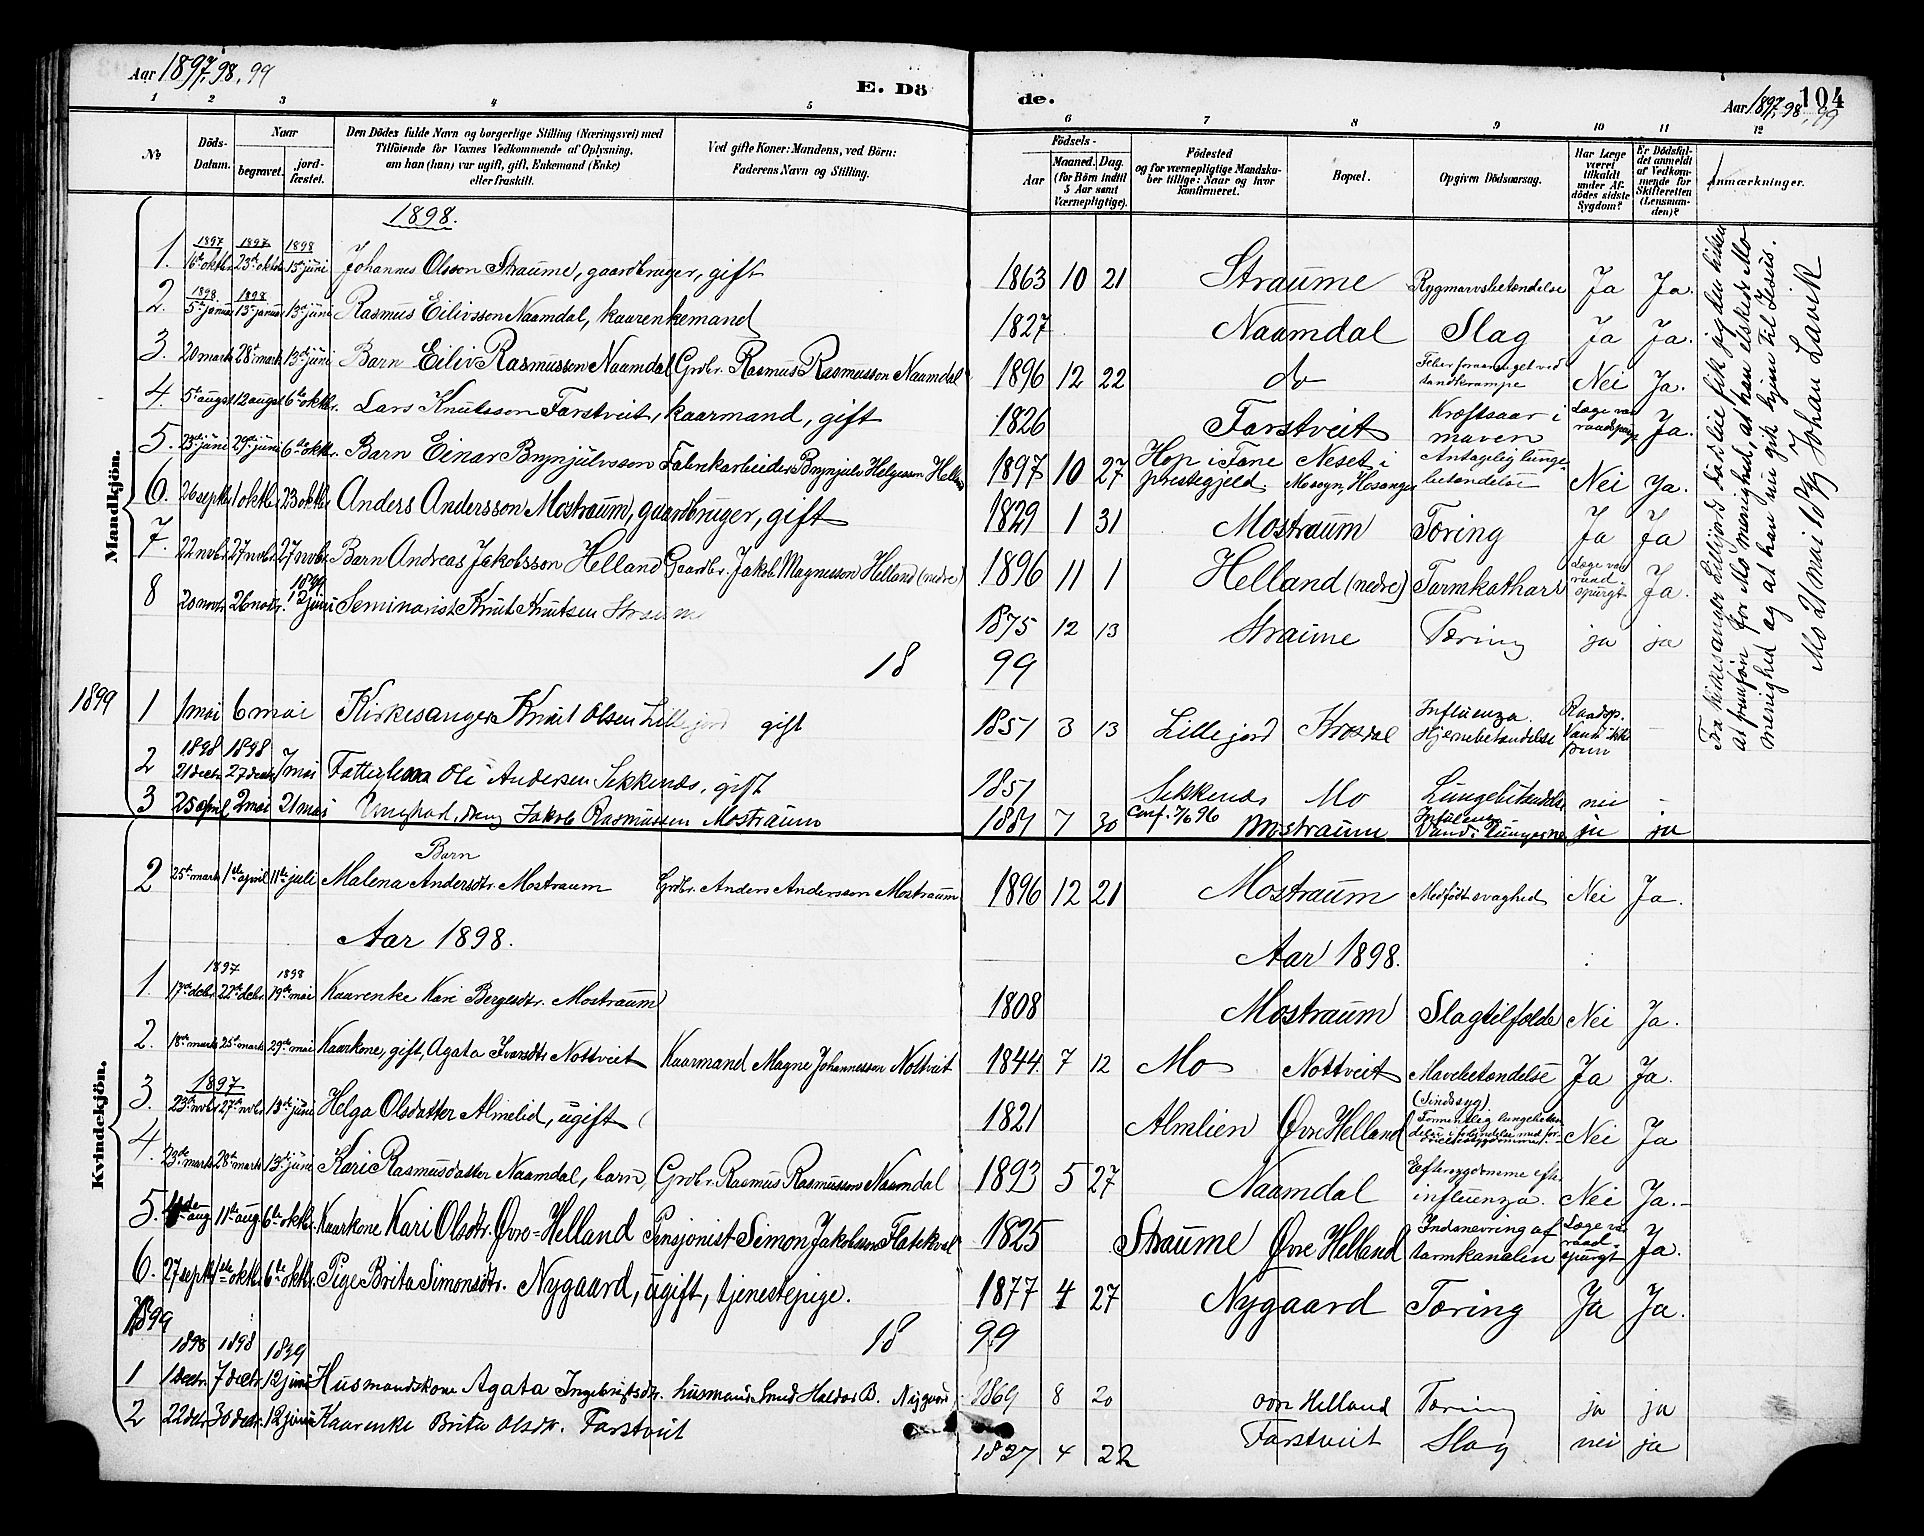 Aar 1897, 98, 99
E. Dö
de.
Aar 1897, 98, 99
104
1 2 3 4 5 6 7 8 9 10 11 12
№
Döds-Datum.
Naar
begravet.
jord-fæstet.
Den Dödes fulde Navn og borgerlige Stilling (Næringsvei) med
Tilföiende for Voxnes Vedkommende af Oplysning,
om han (hun) var ugift, gift, Enkemand (Enke)
eller fraskilt.
Ved gifte Koner: Mandens, ved Börn:
Faderens Navn og Stilling.
Födsels-
Aar
Maaned. Dag.
(for Börn indtil 5 Aar samt Værnepligtige).
Födested
og for værnepligtige Mandskaber tillige: Naar og hvor konfirmeret.
Bopæl.
Opgiven Dödsaarsag.
Har Læge været tilkaldt under Afdödes sidste Sygdom?
Er Dödsfaldet anmeldt af Vedkommende for Skifteretten (Lensmanden)?
Anmærkninger.
Mandkjön.
1898.
1. 1897 16de oktbr. 1897 23de oktbr. 1898 13de juni Johannes Olsson Straume, gaardbruger, gift 1863 10 21 Straume Rygmarvsbetændelse Ja Ja.
2. 1898 5te januar 1898 13de januar 13de juni Rasmus Eilivsson Naamdal, kaarenkemand 1827 Naamdal Slag Ja Ja.
3. 20 marts 28de marts 13de juni Barn Eiliv Rasmusson Naamdal Grdbr. Rasmus Rasmusson Naamdal 1896 12 22 do Feber foraarsaget ved tandkrampe Nei Ja.
4. 5te august 12 august 6te oktbr. Lars Knutsson Farstveit, kaarmand, gift 1826 Farstveit Kræftsaar i maven Læge var raadspurgt Ja.
5. 23de juni 29de juni 6te oktbr. Barn Einar Brynjulvsson Fabrikarbeider Brynjulv Helgesson Helland 1897 10 27 Hop i Fane prestegjeld. Neset i Mosøyn, Hosanger Antagelig lungebetændelse Nei Ja.
6. 26 septbr. 1 oktbr. 23 oktbr. Anders Andersson Mostraum, gaardbruger, gift 1829 1 31 Mostraum Tæring Ja Ja
7. 22 novbr. 27 novbr. 27 novbr. Barn Andreas Jakobsson Helland Gaardbr. Jakob Magnesson Helland (nedre) 1896 11 1 Helland (nedre) Tarmkatharr Læge var raadspurgt Ja.
8 20 novbr. 26 novbr. 1899 12 juni Seminarist Knut Knutsen Straume 1875 12 13 Straume Tæring ja ja
1899
1899 1 1 mai 6 mai Kirkesanger Knut Olsen Lillejord gift 1851 3 13 Lillejord Krosdal Influenza. Hjernebetændelse Raadsp. –
2 1898 21 decbr. 1898 27 decbr. 7 mai Fattiglem Ole Andersen Sekkenes, gift 1851 Sekkenes Mo Lungebetændelse nei –
3 25 april 2 mai 21 mai Ungkarl, Jakob Rasmussen Mostraum 1881 7 30 Conf. 7/6 96 Mostraum Influenza Vand i Lungerne ja ja
Kvindekjön.
2 25de marts 1ste april 11te juli Barn Malena Andersdtr. Mostraum Grdbr. Anders Anderssen Mostraum 1896 12 21 Mostraum Medfödt svaghed Nei Ja.
Aar 1898. Aar 1898.
1. 1897 17de decbr. 22de decbr. 1898 19de mai Kaarenke Kari Bergesdtr. Mostraum 1808 Mostraum Slagtilfælde Nei Ja.
2. 18de marts 25de marts 29de mai Kaarkone, gift, Agata Ivarsdtr Nottveit Kaarmand Magne Johannessen Nottveit 1844. 7 12 Mo Nottveit Mavebetændelse Ja Ja.
3. 1897 23de novbr. 27de novbr. 13de juni Helga Olsdatter Almelid, ugift 1821 Almlien Øvre Helland (Sindssyg) Nei Ja
4. 23de marts 28de marts 13de juni Kari Rasmusdatter Naamdal, barn, Grdbr. Rasmus Rasmussen Naamdal 1893 5 27 Naamdal Eftersygdomme efter influenza. Nei Ja.
5. aug. 11te aug. 6te oktbr. Kaarkone Kari Olsdtr. Øvre-Helland Pensjonist Simon Jakobsen Flatekval 1825 Straume Øvre Helland Indsnevring af tarmkanalen Læge var raadspurgt Ja.
6. 27 septbr. 1ste oktbr. 6te oktbr. Pige Brita Simonsdtr. Nygaard, ugift, tjenestepige. 1877 4 27 Nygaard Tæring Ja Ja.
1899 1899
1 1898 1 decbr. 1898 7 decbr. 1899 12 juni Husmandskone Agata Ingebrigtsdtr. husmand, Smed Haldor B. Nygaard 1869 8 20 øvre Helland Tæring ja ja
2 22 dcbr. 30 decbr. 12 juni Kaarenke Brita Olsdtr. Farstveit 1827 4 22 Farstveit Slag nei ja
Fra Kirkesanger Lillejords dødsleie fik jeg den hilsen
at fremføre for Mo menighed, at han elskede Mo
menighed og at han nu gik hjem til Jesus.
Mo 21 mai 1899 Johan Lavik